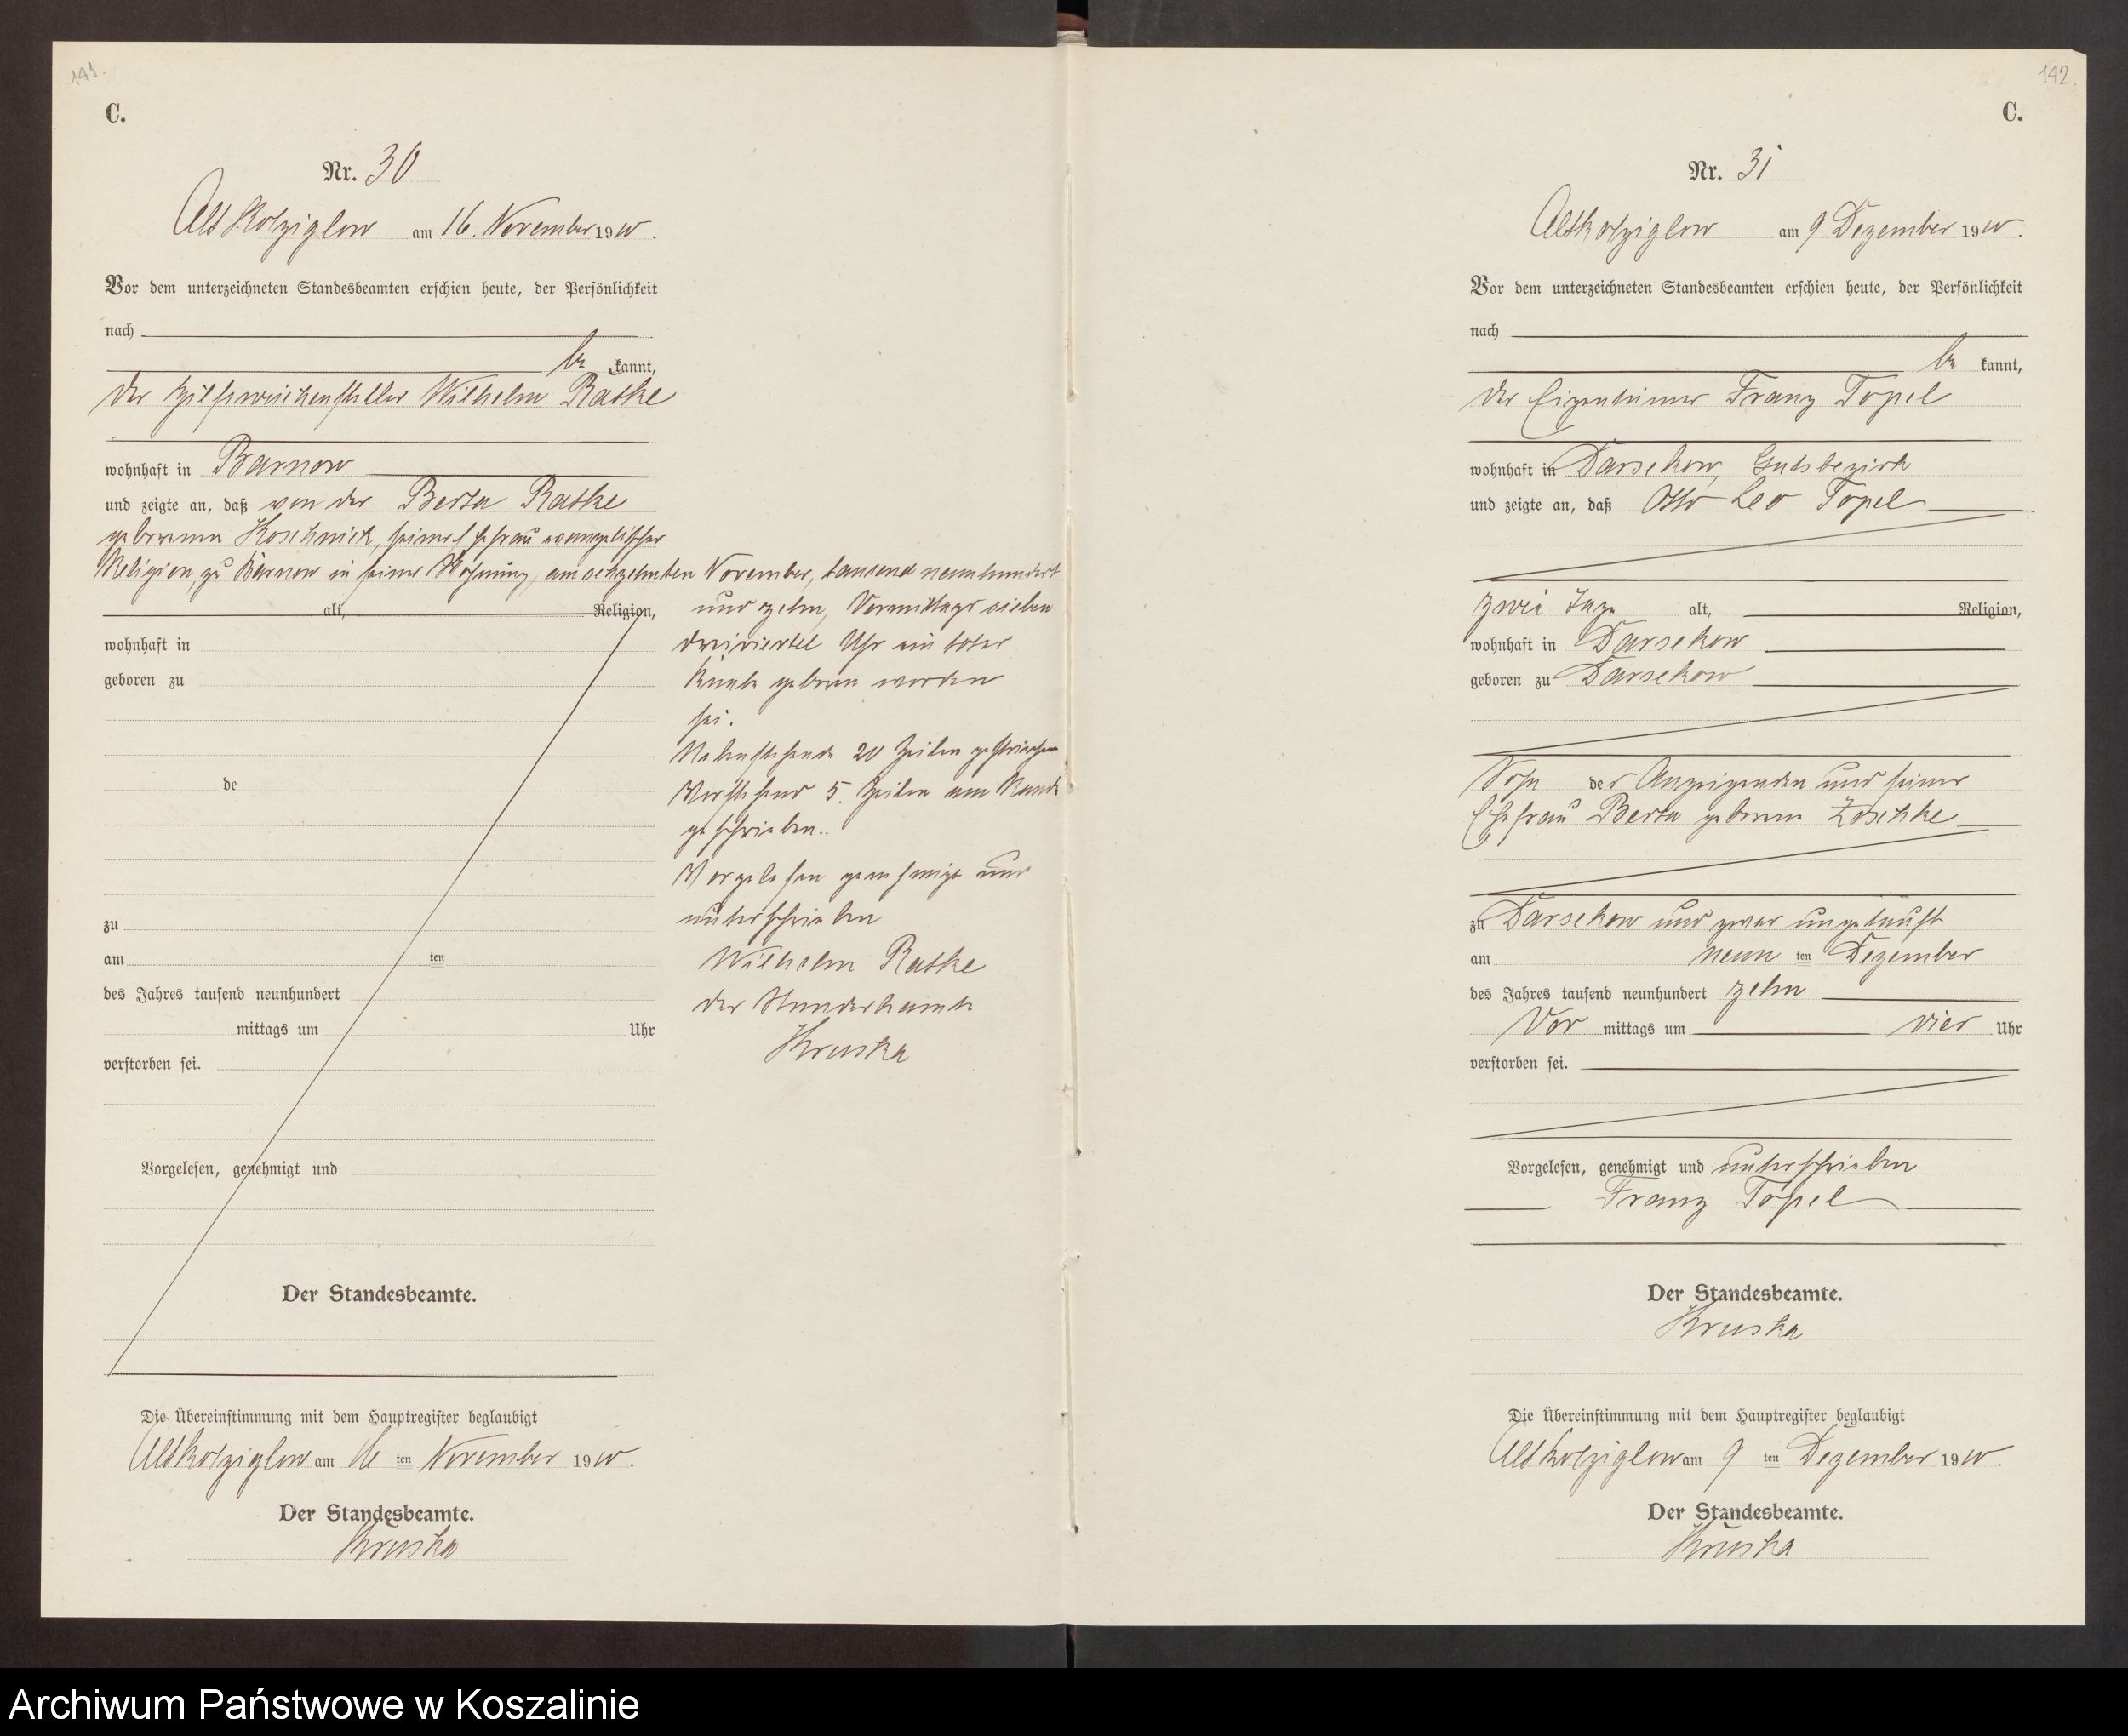 141.
C.
Nr. 30
Alt Kolziglow am 16. November 1910.
Vor dem unterzeichneten Standesbeamten erschien heute, der Persönlichkeit
nach
be kannt,
der Hilfsweichensteller Wilhelm Ratke
wohnhaft in Barnow
und zeigte an, daß von der Berta Ratke
geborenen Koschnick, seiner Ehefrau evangelischer
Religion, zu Barnow in seiner Wohnung, am sechzehnten November, tausend neunhundert
alt, Religion,
wohnhaft in
geboren zu
de
zu
am ten
des Jahres tausend neunhundert
mittags um Uhr
verstorben sei.
Vorgelesen, genehmigt und
Der Standesbeamte.
und zehn, Vormittags sieben
dreiviertel Uhr ein toter
Knabe geboren worden
sei.
Nebenstehende 20 Zeilen gestrichen
Vorstehend 5. Zeilen am Rande
geschrieben.
Vorgelesen genehmigt und
unterschrieben
Wilhelm Ratke
der Standesbeamte
Kruska
Die Übereinstimmung mit dem Hauptregister beglaubigt
Altkolziglow am 16 ten November 1910.
Der Standesbeamte.
Kruska
142.
C.
Nr. 31
Altkolziglow am 9 Dezember 1910.
Vor dem unterzeichneten Standesbeamten erschien heute, der Persönlichkeit
nach
be kannt,
der Eigentümer Franz Topel
wohnhaft in Darsekow, Gutsbezirk
und zeigte an, daß Otto Leo Topel
zwei Tage alt, Religion,
wohnhaft in Darsekow
geboren zu Darsekow
Sohn des Anzeigenden und seiner
Ehefrau Berta geborene Zoschke
zu Darsekow und zwar ungetauft
am neun ten Dezember
des Jahres tausend neunhundert zehn
Vor mittags um vier Uhr
verstorben sei.
Vorgelesen, genehmigt und unterschrieben
Franz Topel
Der Standesbeamte.
Kruska
Die Übereinstimmung mit dem Hauptregister beglaubigt
Altkolziglow am 9 ten Dezember 1910.
Der Standesbeamte.
Kruska
Archiwum Państwowe w Koszalinie